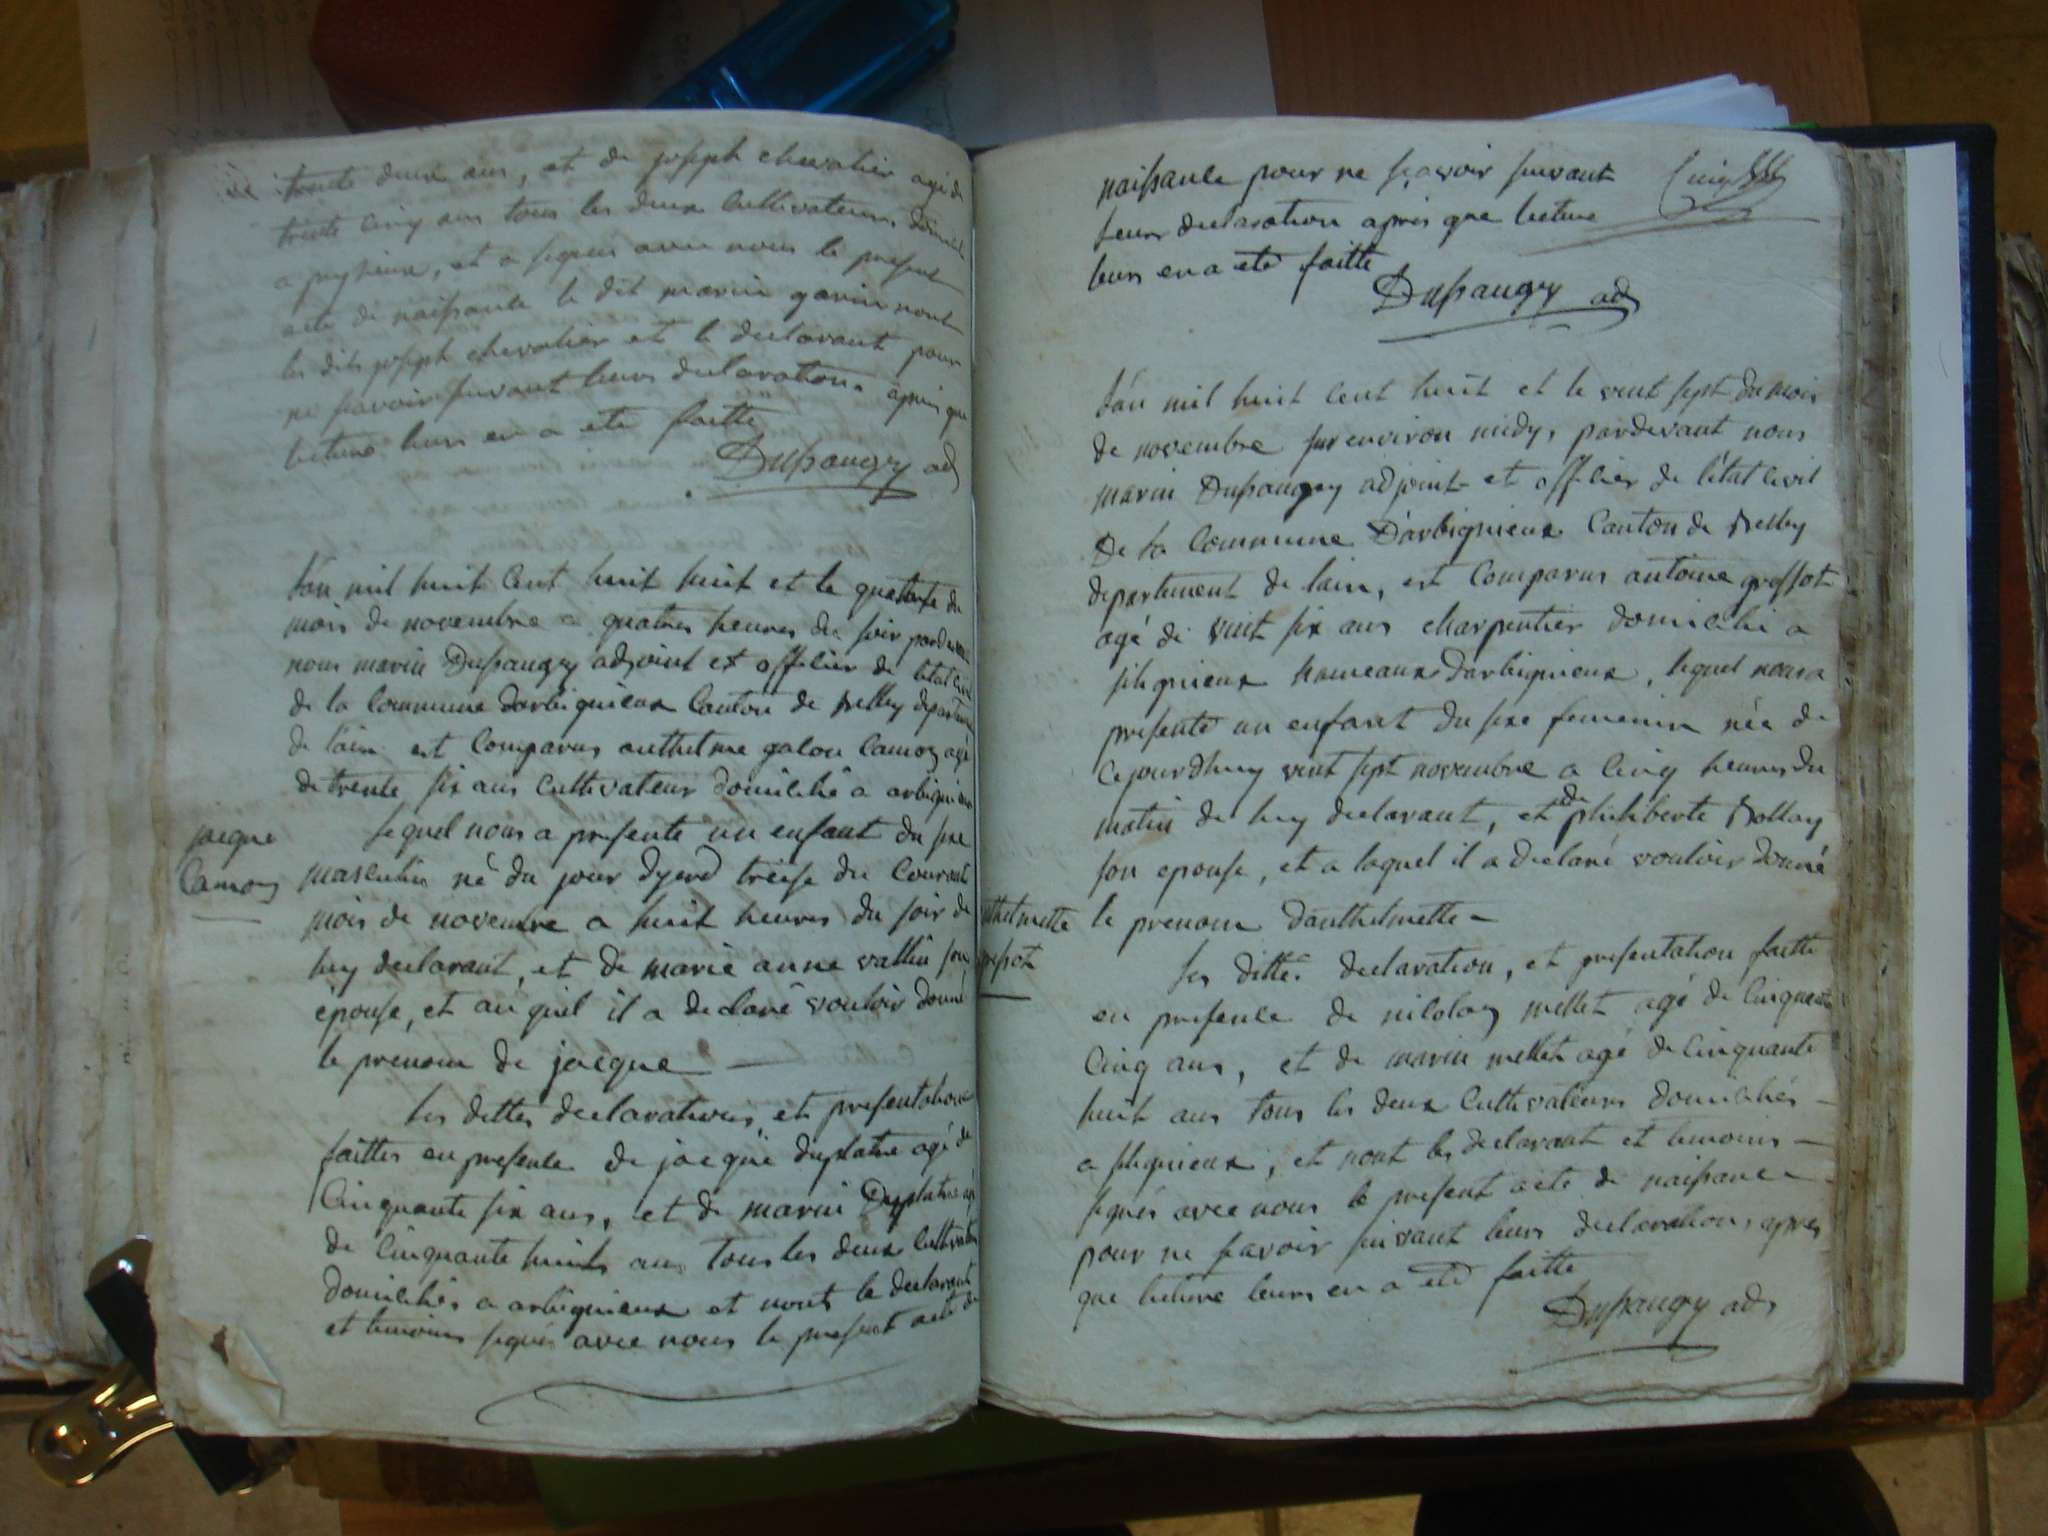 trente deux ans, et de joseph chevalier agé de
trente cinq ans tous les deux cultivateurs
a peyzieux, et a signés avec nous le present
acte de naissance le dit marin gavin nont
les dits joseph chevalier et le declarant pour
ne scavoir suivant leurs declarations apres que
lecture leurs en a eté faitte
Dupaugey adj
L'an mil huit cent huit huit et le quatorze du
mois de novembre a quatres heures du soir pardevant
nous marin Dupaugey adjoint et officier de l'etat civil
de la commune d'arbignieux canton de Belley departement
de l'ain est comparus anthelme galon camoz agé
de trente six ans cultivateur domicilié a arbignieux
jacque
camoz
lequel nous a presenté un enfant du sexe
masculin né du jour dyerd treise du courant
mois de novembre a huit heures du soir de
luy declarant, et de marie anne vallin son
épouse, et au quel il a declaré vouloir donné
le prenom de jacque
les dittes declarations, et presentations
faittes en presence de jacque duplatre agé de
cinquante six ans, et de marin Duplatre agé
de cinquante huits ans tous les deux cultivateurs
domiciliés a arbignieux et nont le declarant
et temoins signés avec nous le present acte de
naissance pour ne scavoir suivant
leurs declaration après que lecture
leurs en a eté faitte
Dupaugey adj
L'an mil huit cent huit et le vent sept du mois
de novembre sur environ midy, pardevant nous
marin Dupaugey adjoint et officier de l'état civil
De la commune D'arbignieux canton de Belley
departement de lain, est comparus antoine gressot
agé de vint six ans charpentier domicilié a
slignieux hameaux d'arbignieux, lequel nous a
presenté un enfant du sexe femenin née de
cejourdhuy vent sept novembre a cinq heures du
matin de luy declarant, et de philiberte Bollon
son epouse, et a laquel il a declaré vouloir donné
thelmette
gressot
le prenom danthelmette
les dittes declaration, et presentation faitte
en presence de nicolas mellet agé de cinquante
cinq ans, et de marin mellet agé de cinquante
huit ans tous les deux cultivateurs domiciliés
a slignieux, et nont les declarant et temoins
signés avec nous le present acte de naissance
pour ne scavoir suivant leurs declarations, apres
que lecture leurs en a eté faitte
Dupaugey adj